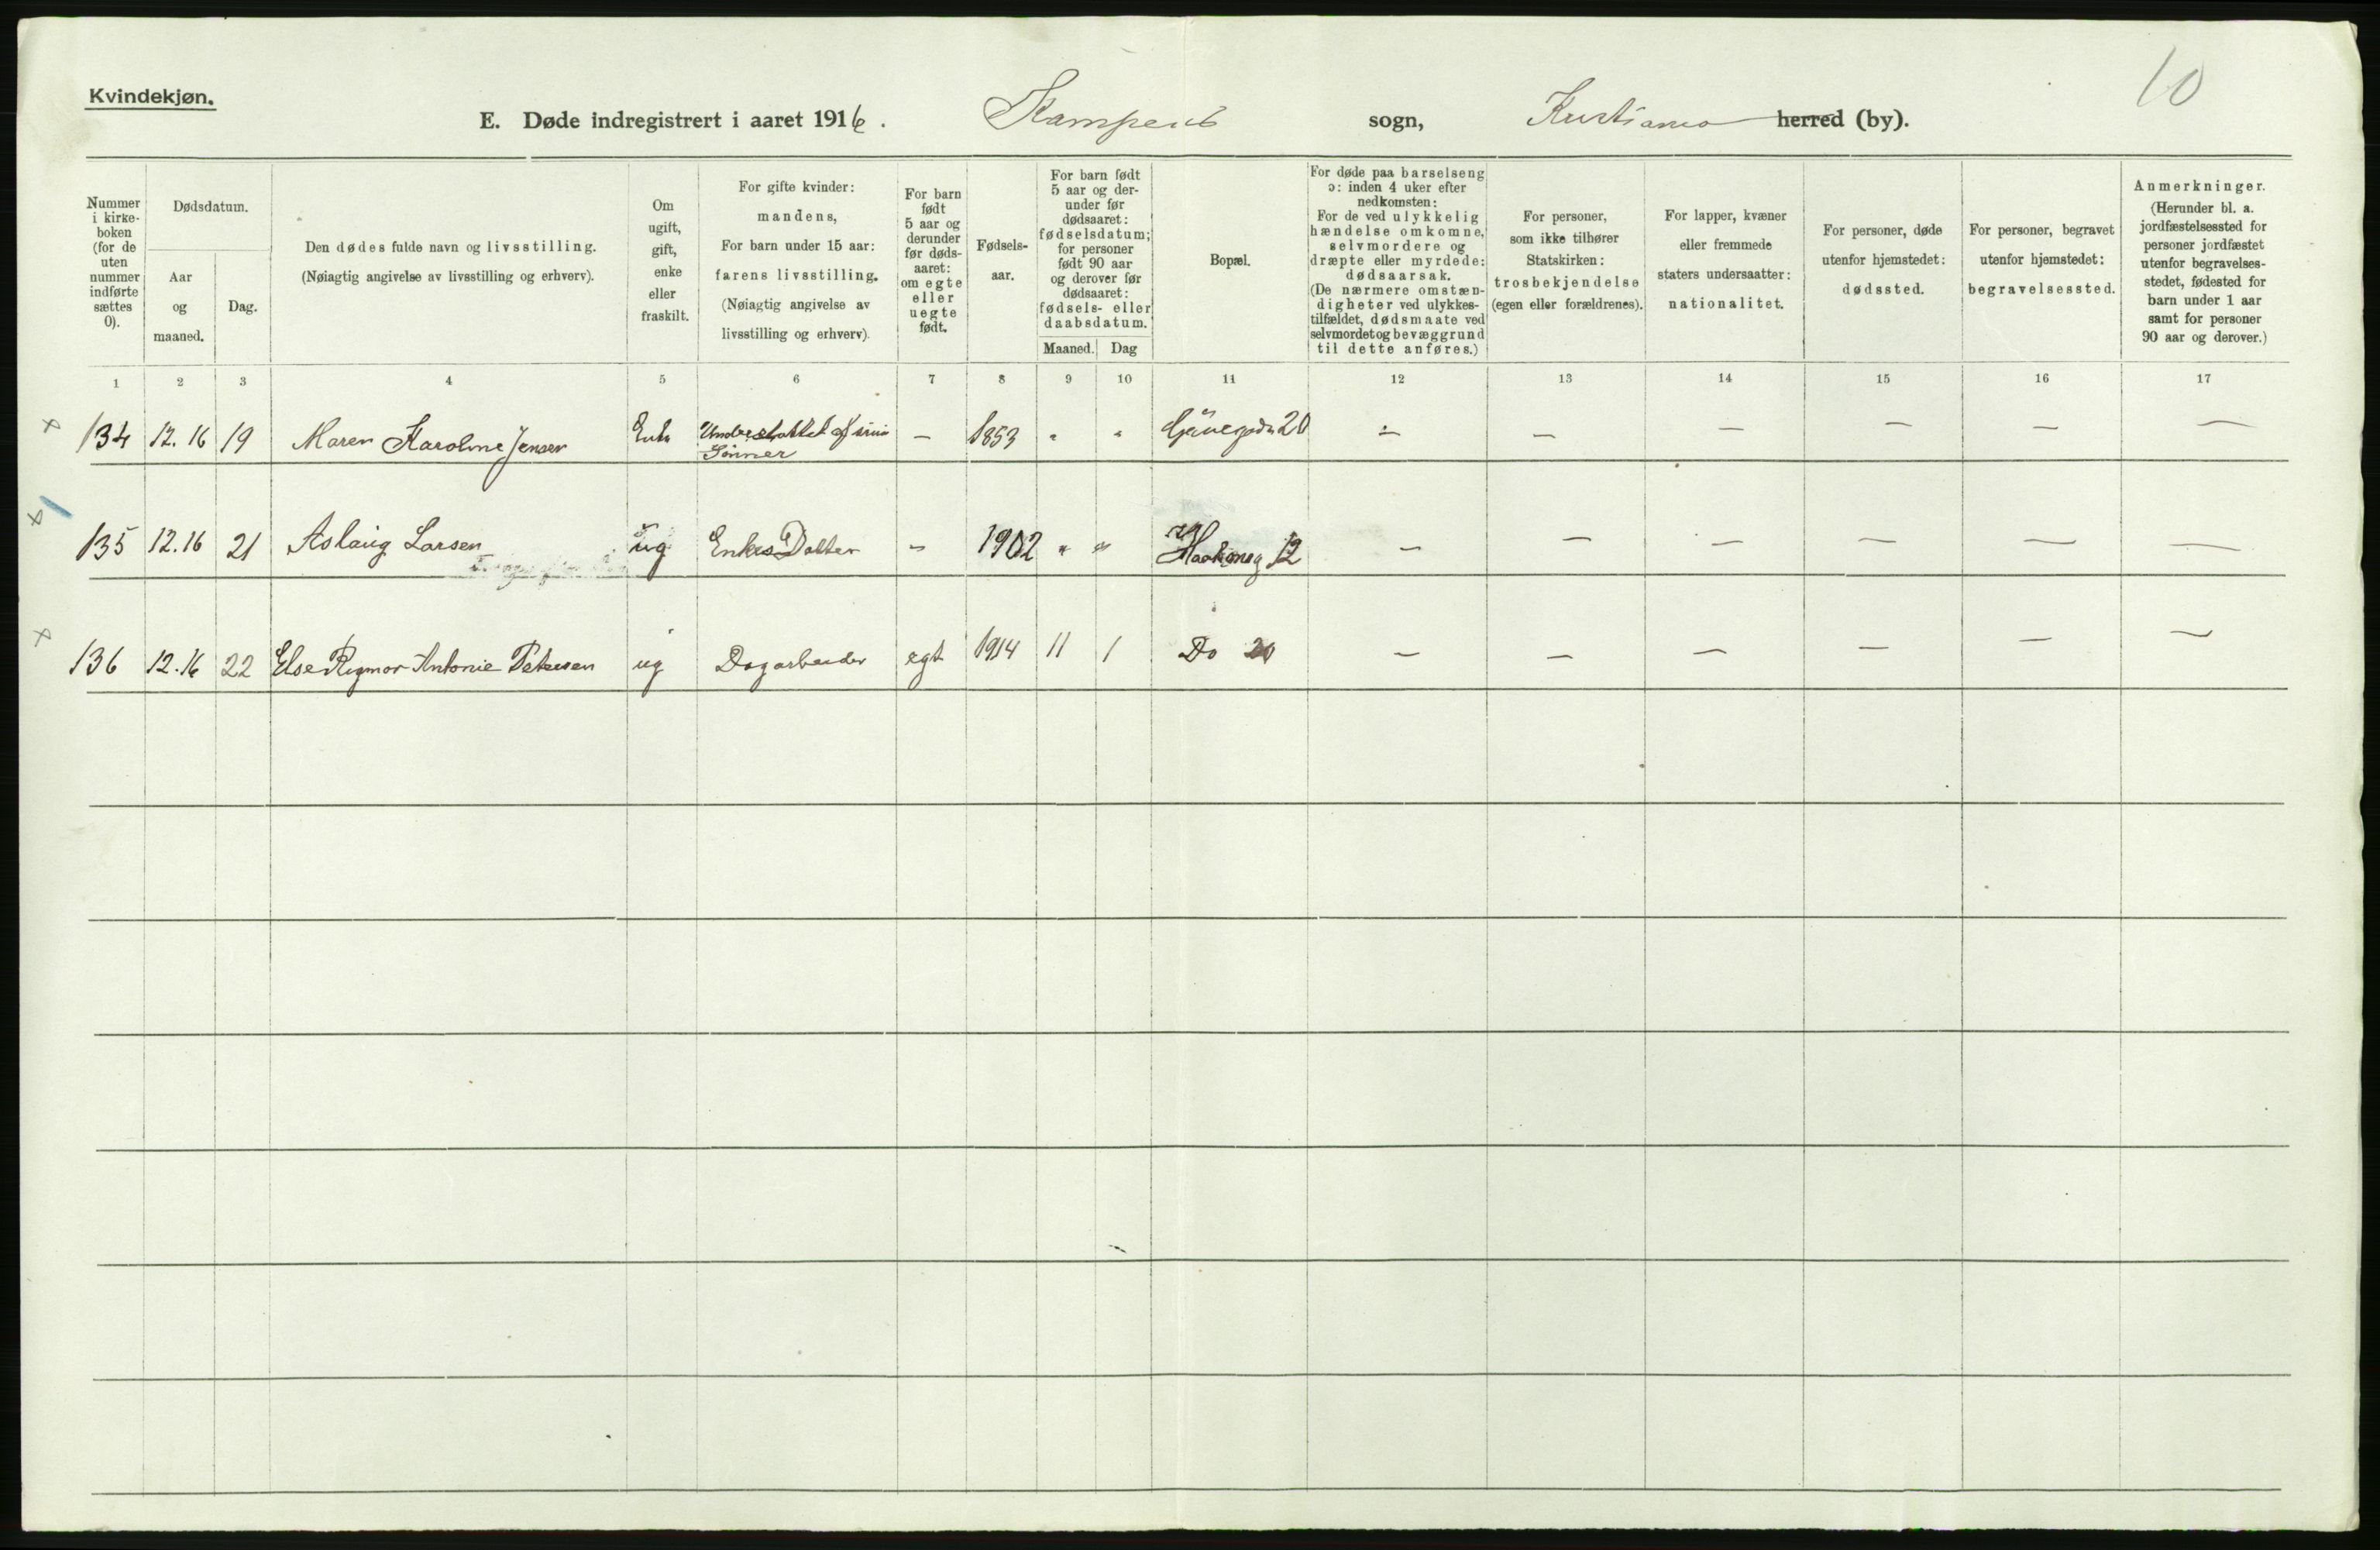 10
Kvindekjøn.
E. Døde indregistrert i aaret 1916. Kampens sogn, Kristiania herred (by).
Nummer i kirke-boken (for de uten nummer indførte sættes 0).
Dødsdatum.
Aar og maaned.
Dag.
Den dødes fulde navn og livsstilling.
(Nøiagtig angivelse av livsstilling og erhverv).
Om ugift, gift, enke eller fraskilt.
For gifte kvinder: mandens,
For barn under 15 aar: farens livsstilling.
(Nøiagtig angivelse av livsstilling og erhverv).
For barn født 5 aar og derunder før døds-aaret: om egte eller uegte født.
Fødsels-aar.
For barn født 5 aar og der-under før dødsaaret: fødselsdatum; for personer født 90 aar og derover før dødsaaret: fødsels- eller daabsdatum.
Maaned. Dag
Bopæl.
For døde paa barselseng ɔ: inden 4 uker efter nedkomsten:
For de ved ulykkelig hændelse omkomne, selvmordere og dræpte eller myrdede: dødsaarsak.
(De nærmere omstæn-digheter ved ulykkes-tilfældet, dødsmaate ved selvmordet og bevæggrund til dette anføres.)
For personer, som ikke tilhører Statskirken: trosbekjendelse (egen eller forældrenes).
For lapper, kvæner eller fremmede staters undersaatter: nationalitet.
For personer, døde utenfor hjemstedet: dødssted.
For personer, begravet utenfor hjemstedet: begravelsessted.
Anmerkninger.
(Herunder bl. a. jordfæstelsessted for personer jordfæstet utenfor begravelses-stedet, fødested for barn under 1 aar samt for personer 90 aar og derover.)
1 2 3 4 5 6 7 8 9 10 11 12 13 14 15 16 17
x 134 12.16 19 Maren Karoline Jensen Enke Understøttet af sine — 1853 " " 20 — — — — — —
Sønner
x 135 12.16 21 Aslaug Larsen ug Enkes Datter — 1902 " " 12 — — — — — —
x 136 12.16 22 Else Rigmor Antonie Petersen ug Dagarbeider egt 1914 11 1 Do 20 — — — — — —